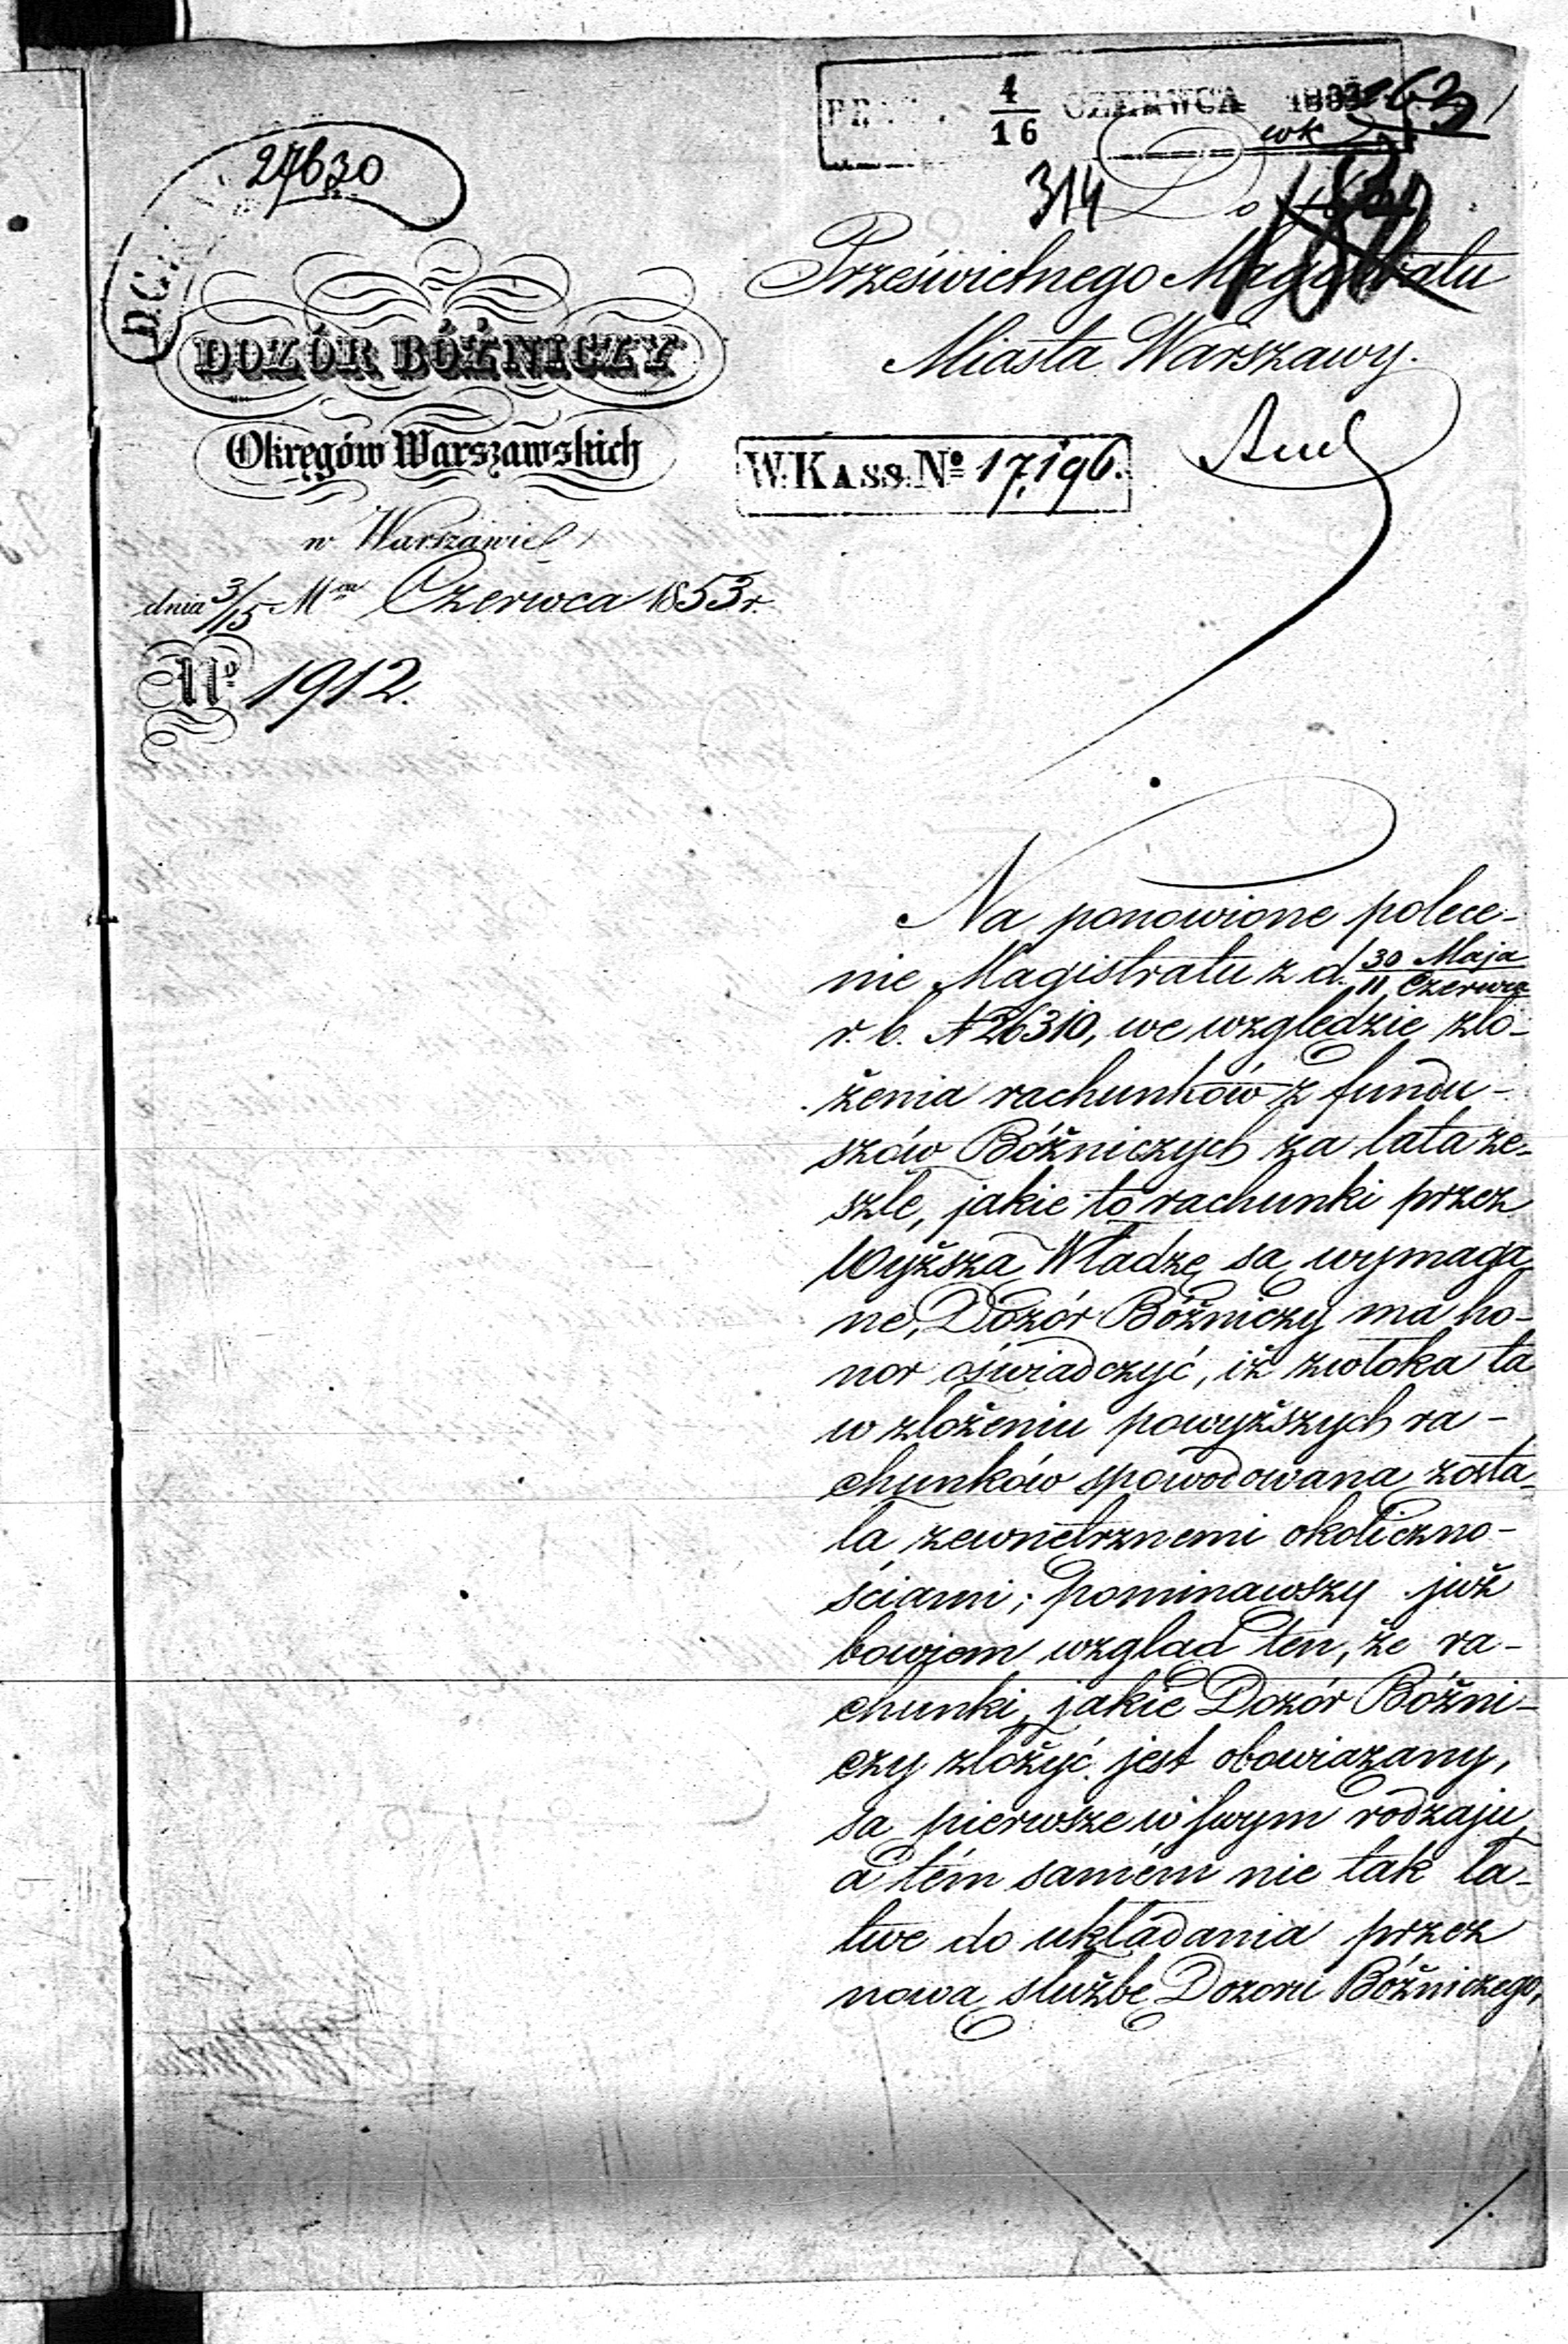 4/16 CZERWCA 1853
27630
314
Do
Prześwietnego Magistratu
Miasta Warszawy.
DOZÓR BÓŻNICZY
Okręgów Warszawskich
W. KASS. Nº 17,196.
w Warszawie
dnia 3/15 Mca Czerwca 1853 r.
Nº 1912.
Na ponowione polece-
nie Magistratu z d. 30 Maja/11 Czerwca
r. b. N 26310, we względzie zło-
żenia rachunków z fundu-
szów Bóżniczych za lata ze-
szłe, jakie to rachunki przez
Wyższą Władzę są wymaga
ne, Dozór Bóżniczy ma ho-
nor oświadczyć, iż zwłoka ta
w złożeniu powyższych ra-
chunków spowodowana zosta-
ła zewnętrznemi okoliczno-
ściami; pominąwszy już
bowiem wzgląd ten, że ra-
chunki, jakie Dozór Bóżni-
czy złożyć jest obowiązany,
są pierwsze w swym rodzaju,
a tém samém nie tak ła-
twe do układania przez
nową służbę Dozoru Bóżniczego,